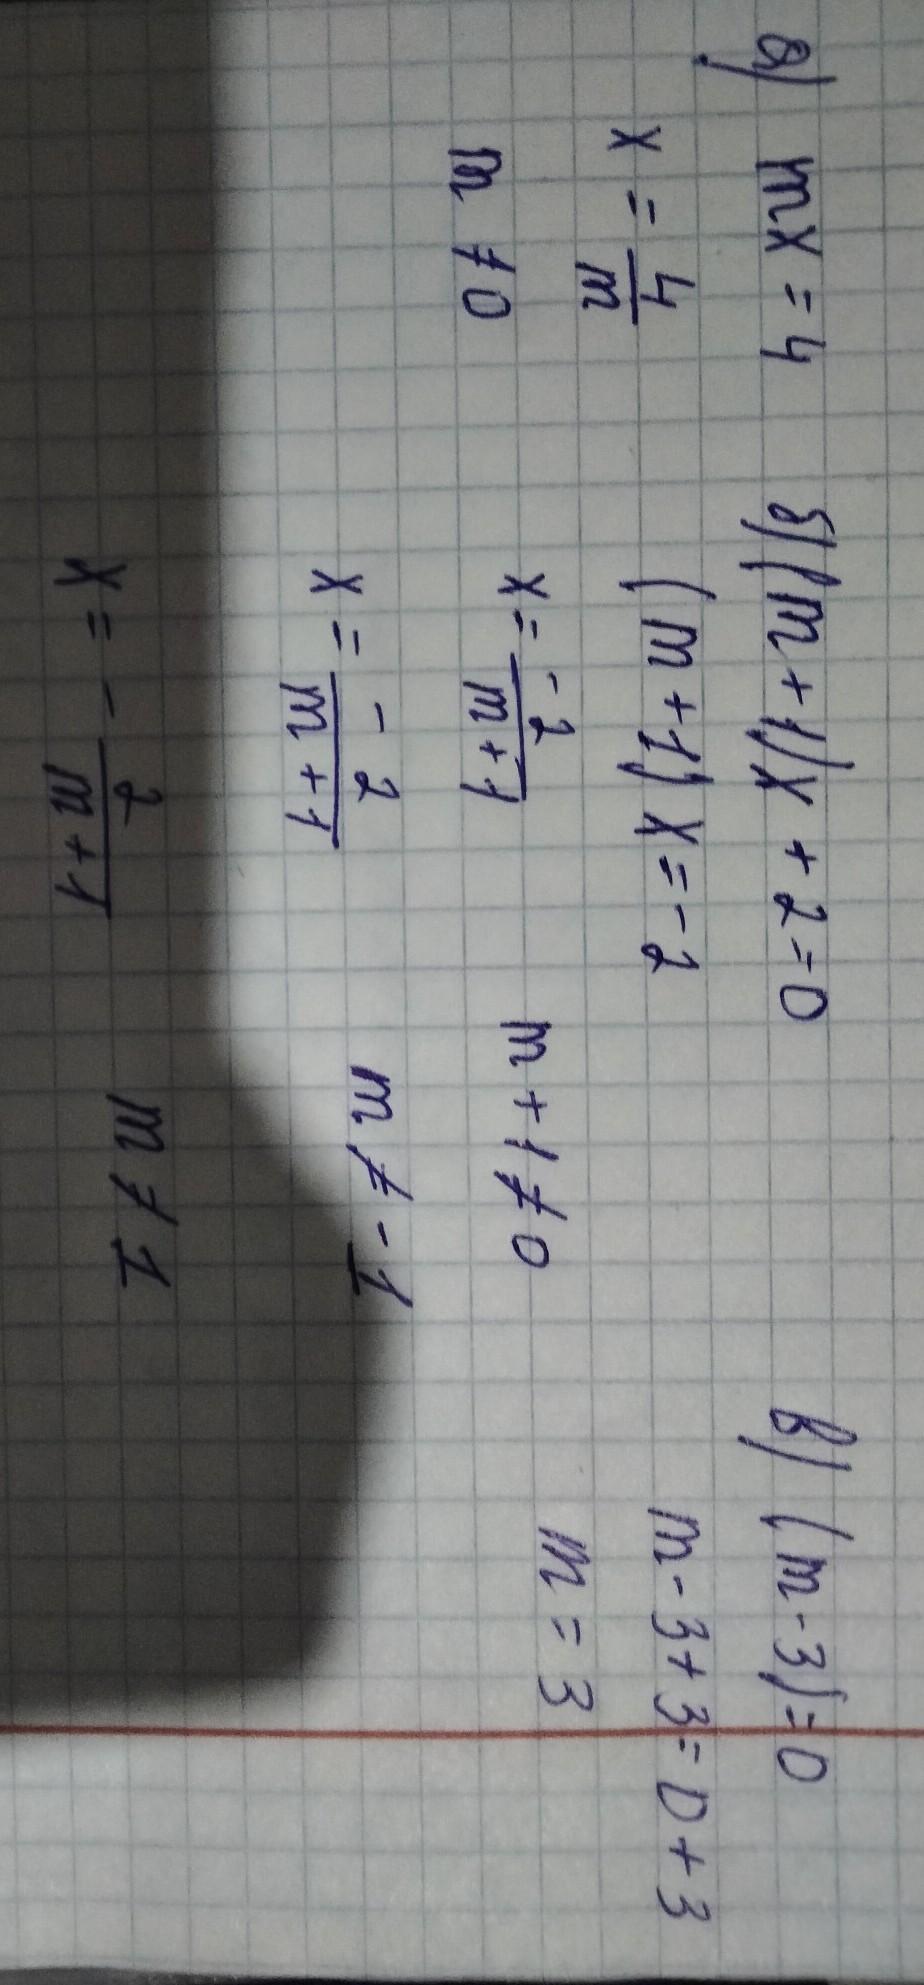 а) mx = 4
x = 4/m
m ≠ 0
б) (m+1)x + 2 = 0
(m+1)x = -2
x = -2/m+1
m+1 ≠ 0
x = -2/m+1
m ≠ -1
x = - 2/m+1
m ≠ 1
в) (m-3) = 0
m-3+3 = 0+3
m = 3